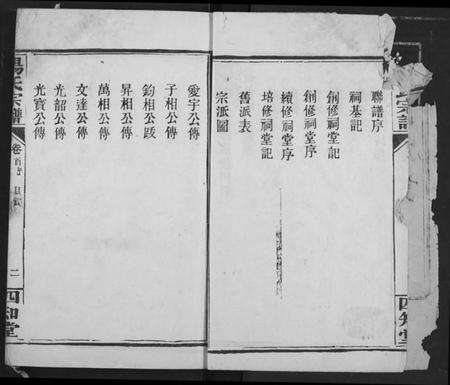 氏宗譜
聯譜序
祠基記
創修祠堂記
創修祠堂序
續修祠堂序
培修祠堂記
舊派表
宗派圖
四知堂
愛宇公傳
子相公傳
鈞相公跋
昇相公傳
萬相公傳
文達公傳
光韶公傳
光寶公傳
楊氏宗譜
卷首
二
四知堂